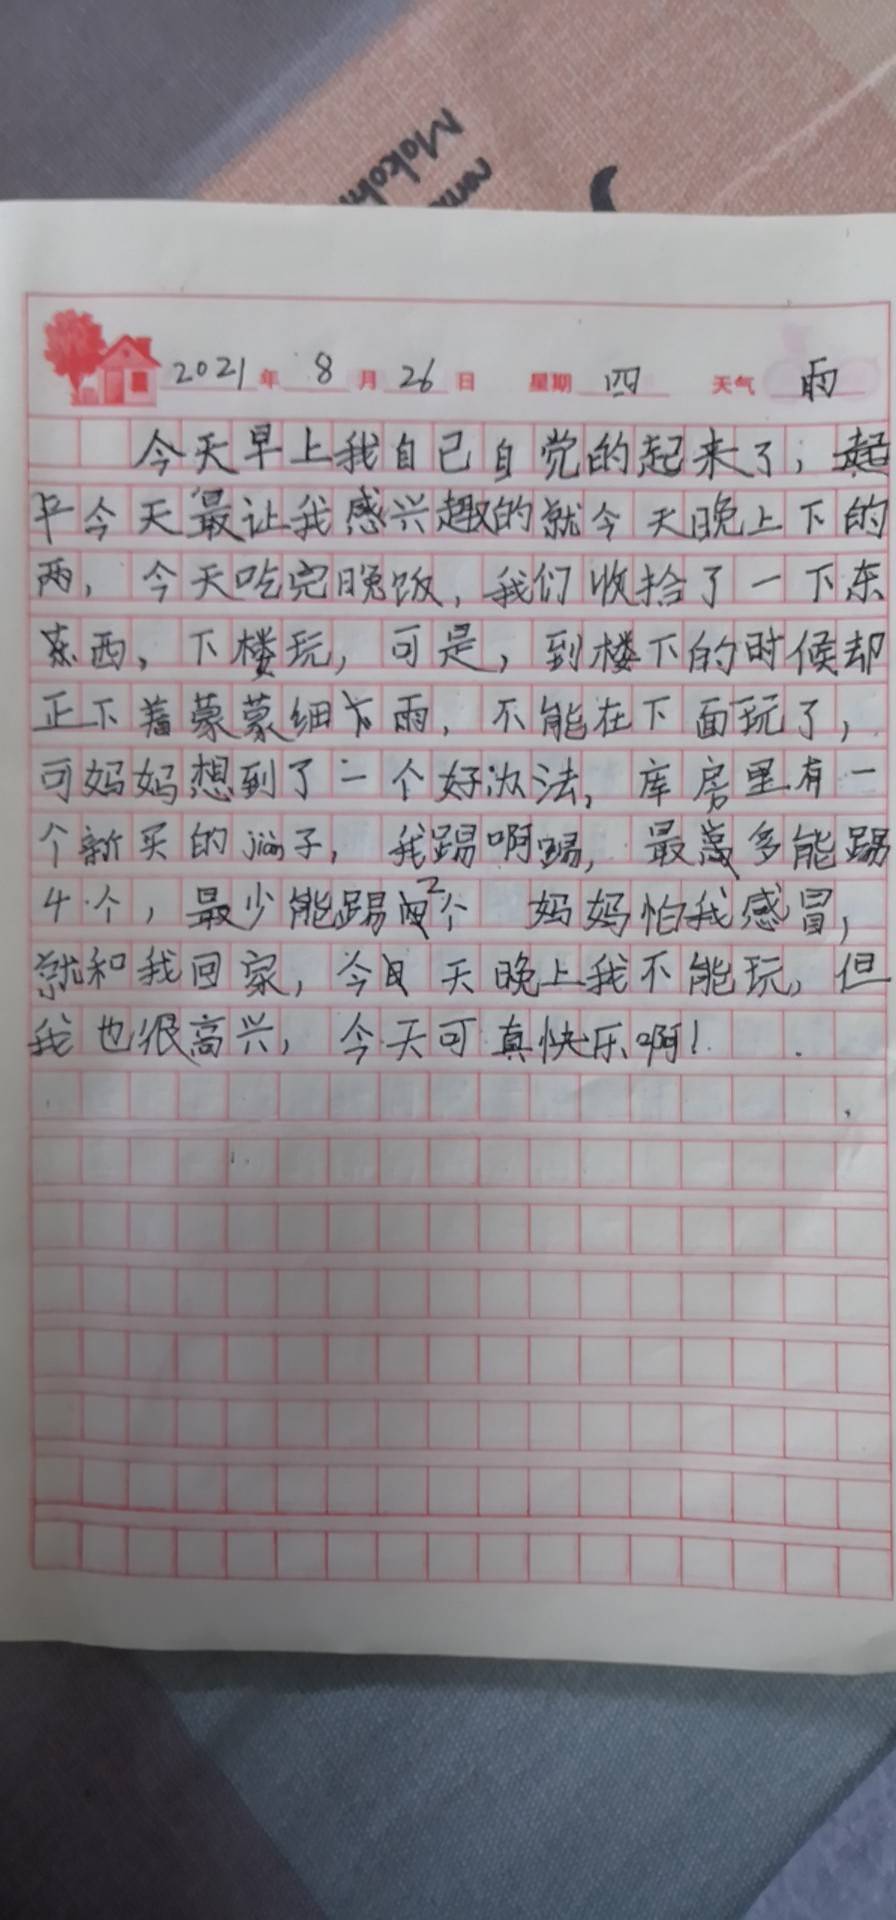 Makoh
2021年 8月 26日 星期四 天气 雨
今天早上我自己自觉的起来了，起
早今天最让我感兴趣的就今天晚上下的
雨，今天吃完晚饭，我们收拾了一下东
西，下楼玩，可是，到楼下的时候却
正下着蒙蒙细雨，不能在下面玩了，
可妈妈想到了一个好办法，库房里有一
个新买的jian子，我踢啊踢，最多能踢
4个，最少能踢2个 妈妈怕我感冒，
就和我回家，今天晚上我不能玩，但
我也很高兴，今天可真快乐啊！